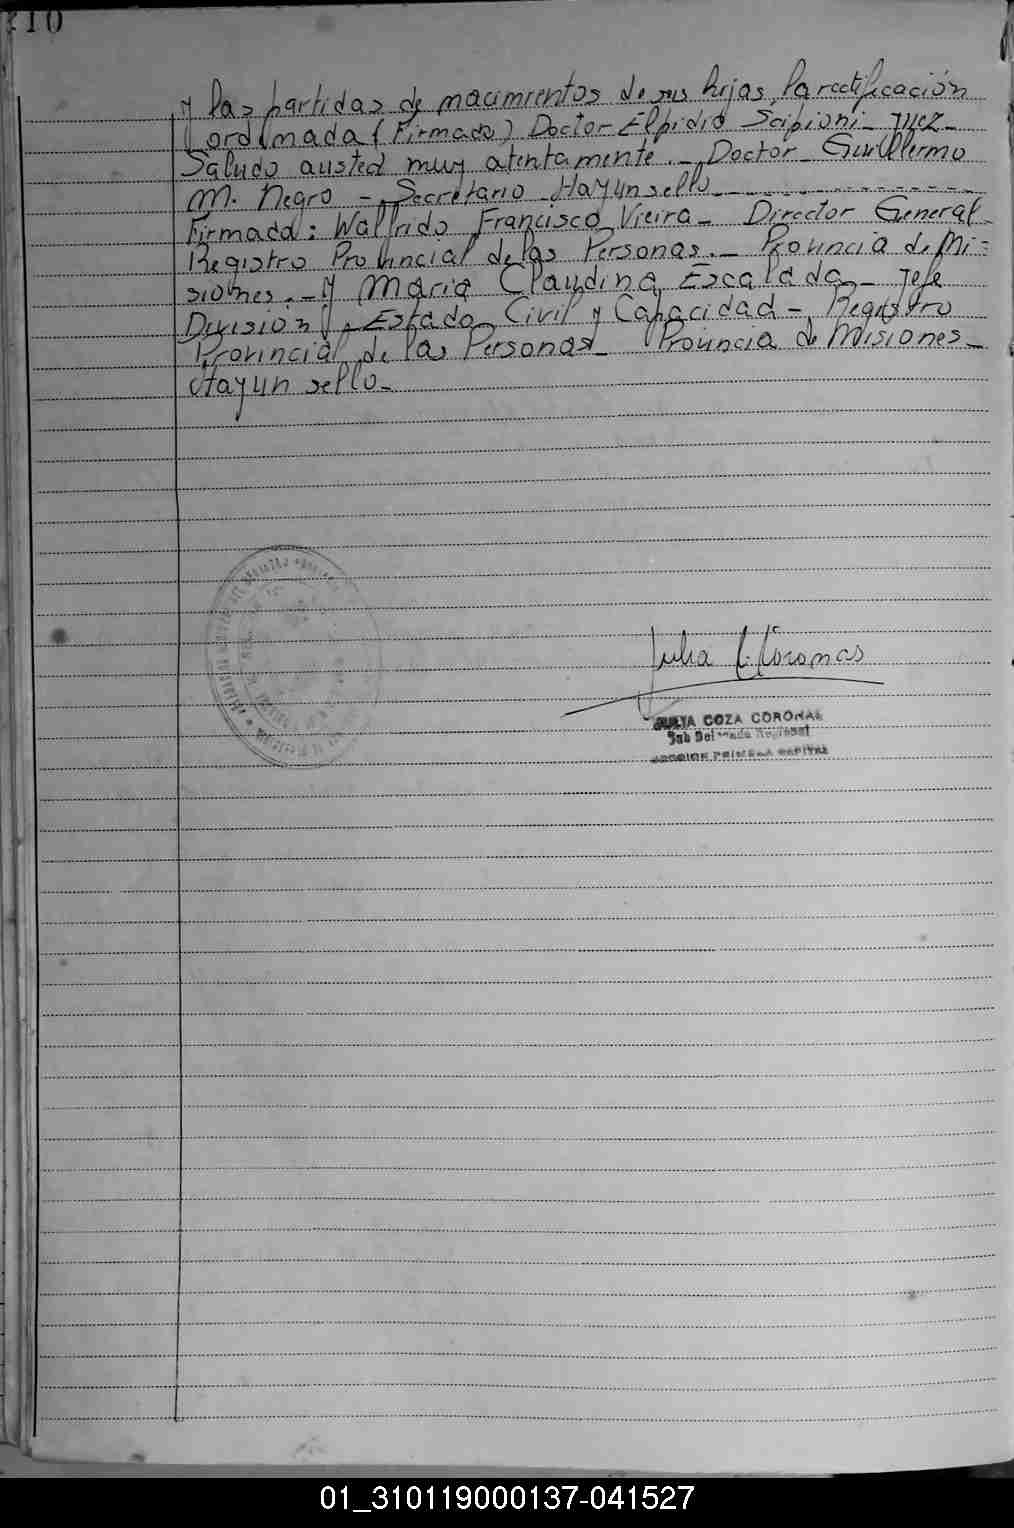 210
y las partidas de nacimientos de sus hijas, la rectificación
ordenada (Firmado) Doctor Elpidio Scipioni - Juez -
Saludo austed muy atentamente. - Doctor Guillermo
M. Negro - Secretario Hayunsello
Firmado: Walfrido Francisco Vieira - Director General
Registro Provincial de las Personas. - Provincia de Mi=
siones. - y Maria Claudina Escalada - Jefe
División Estado Civil y Capacidad - Registro
Provincial de las Personas - Provincia de Misiones -
Hayun sello -
Julia C. Coronas
JULIA COZA CORONAS
Sub Delegada Regional
SECCION PRIMERA CAPITAL
01_310119000137-041527